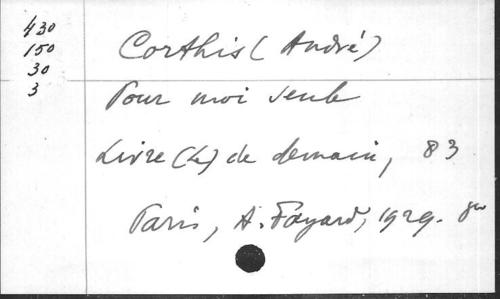 430
150
30
3
Corthis (André)
Pour moi seule
Livre (Le) de demain, 83
Paris, A. Fayard, 1929. 8°